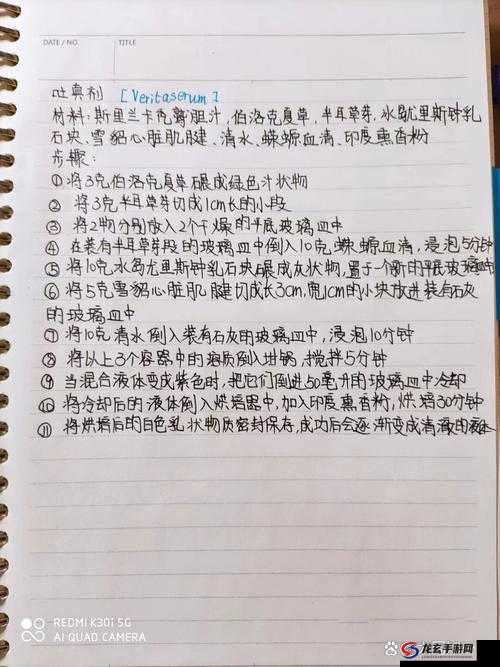 DATE / NO.
TITLE
吐真剂 [Veritaserum]
材料:斯里兰卡兜胆汁,伯洛克夏草,半耳草芽,水岛尤里斯钟乳
石块、雪貂心脏肌腱、清水、蝾螈血清、印度熏香粉
步骤:
①将3克伯洛克夏草碾成绿色汁状物
② 将3克半耳草芽切成1cm长的小段
③ 将2物分别放入2个干燥的平底玻璃皿中
④ 在装有半耳草芽段的玻璃皿中倒入10克蝾螈血清,浸泡5分钟
⑤ 将10克水岛尤里斯钟乳石块碾成灰状物,置于一个新的平底玻璃皿中
⑥ 将5克雪貂心脏肌腱切成长3cm,宽1cm的小块放进装有石灰
的玻璃皿中
⑦ 将10克清水倒入装有石灰的玻璃皿中,浸泡10分钟
⑧ 将以上3个容器中的溶质倒入坩锅,搅拌5分钟
⑨ 当混合液体变成紫色时,把它们倒进50毫升的玻璃皿中冷却
⑩ 将冷却后的液体倒入烘焙器中,加入印度熏香粉,烘焙30分钟
⑪ 将烘焙后的白色乳状物质密封保存,成功后会逐渐变成清澈的液体
REDMI K30i 5G
AI QUAD CAMERA
龙玄手游网